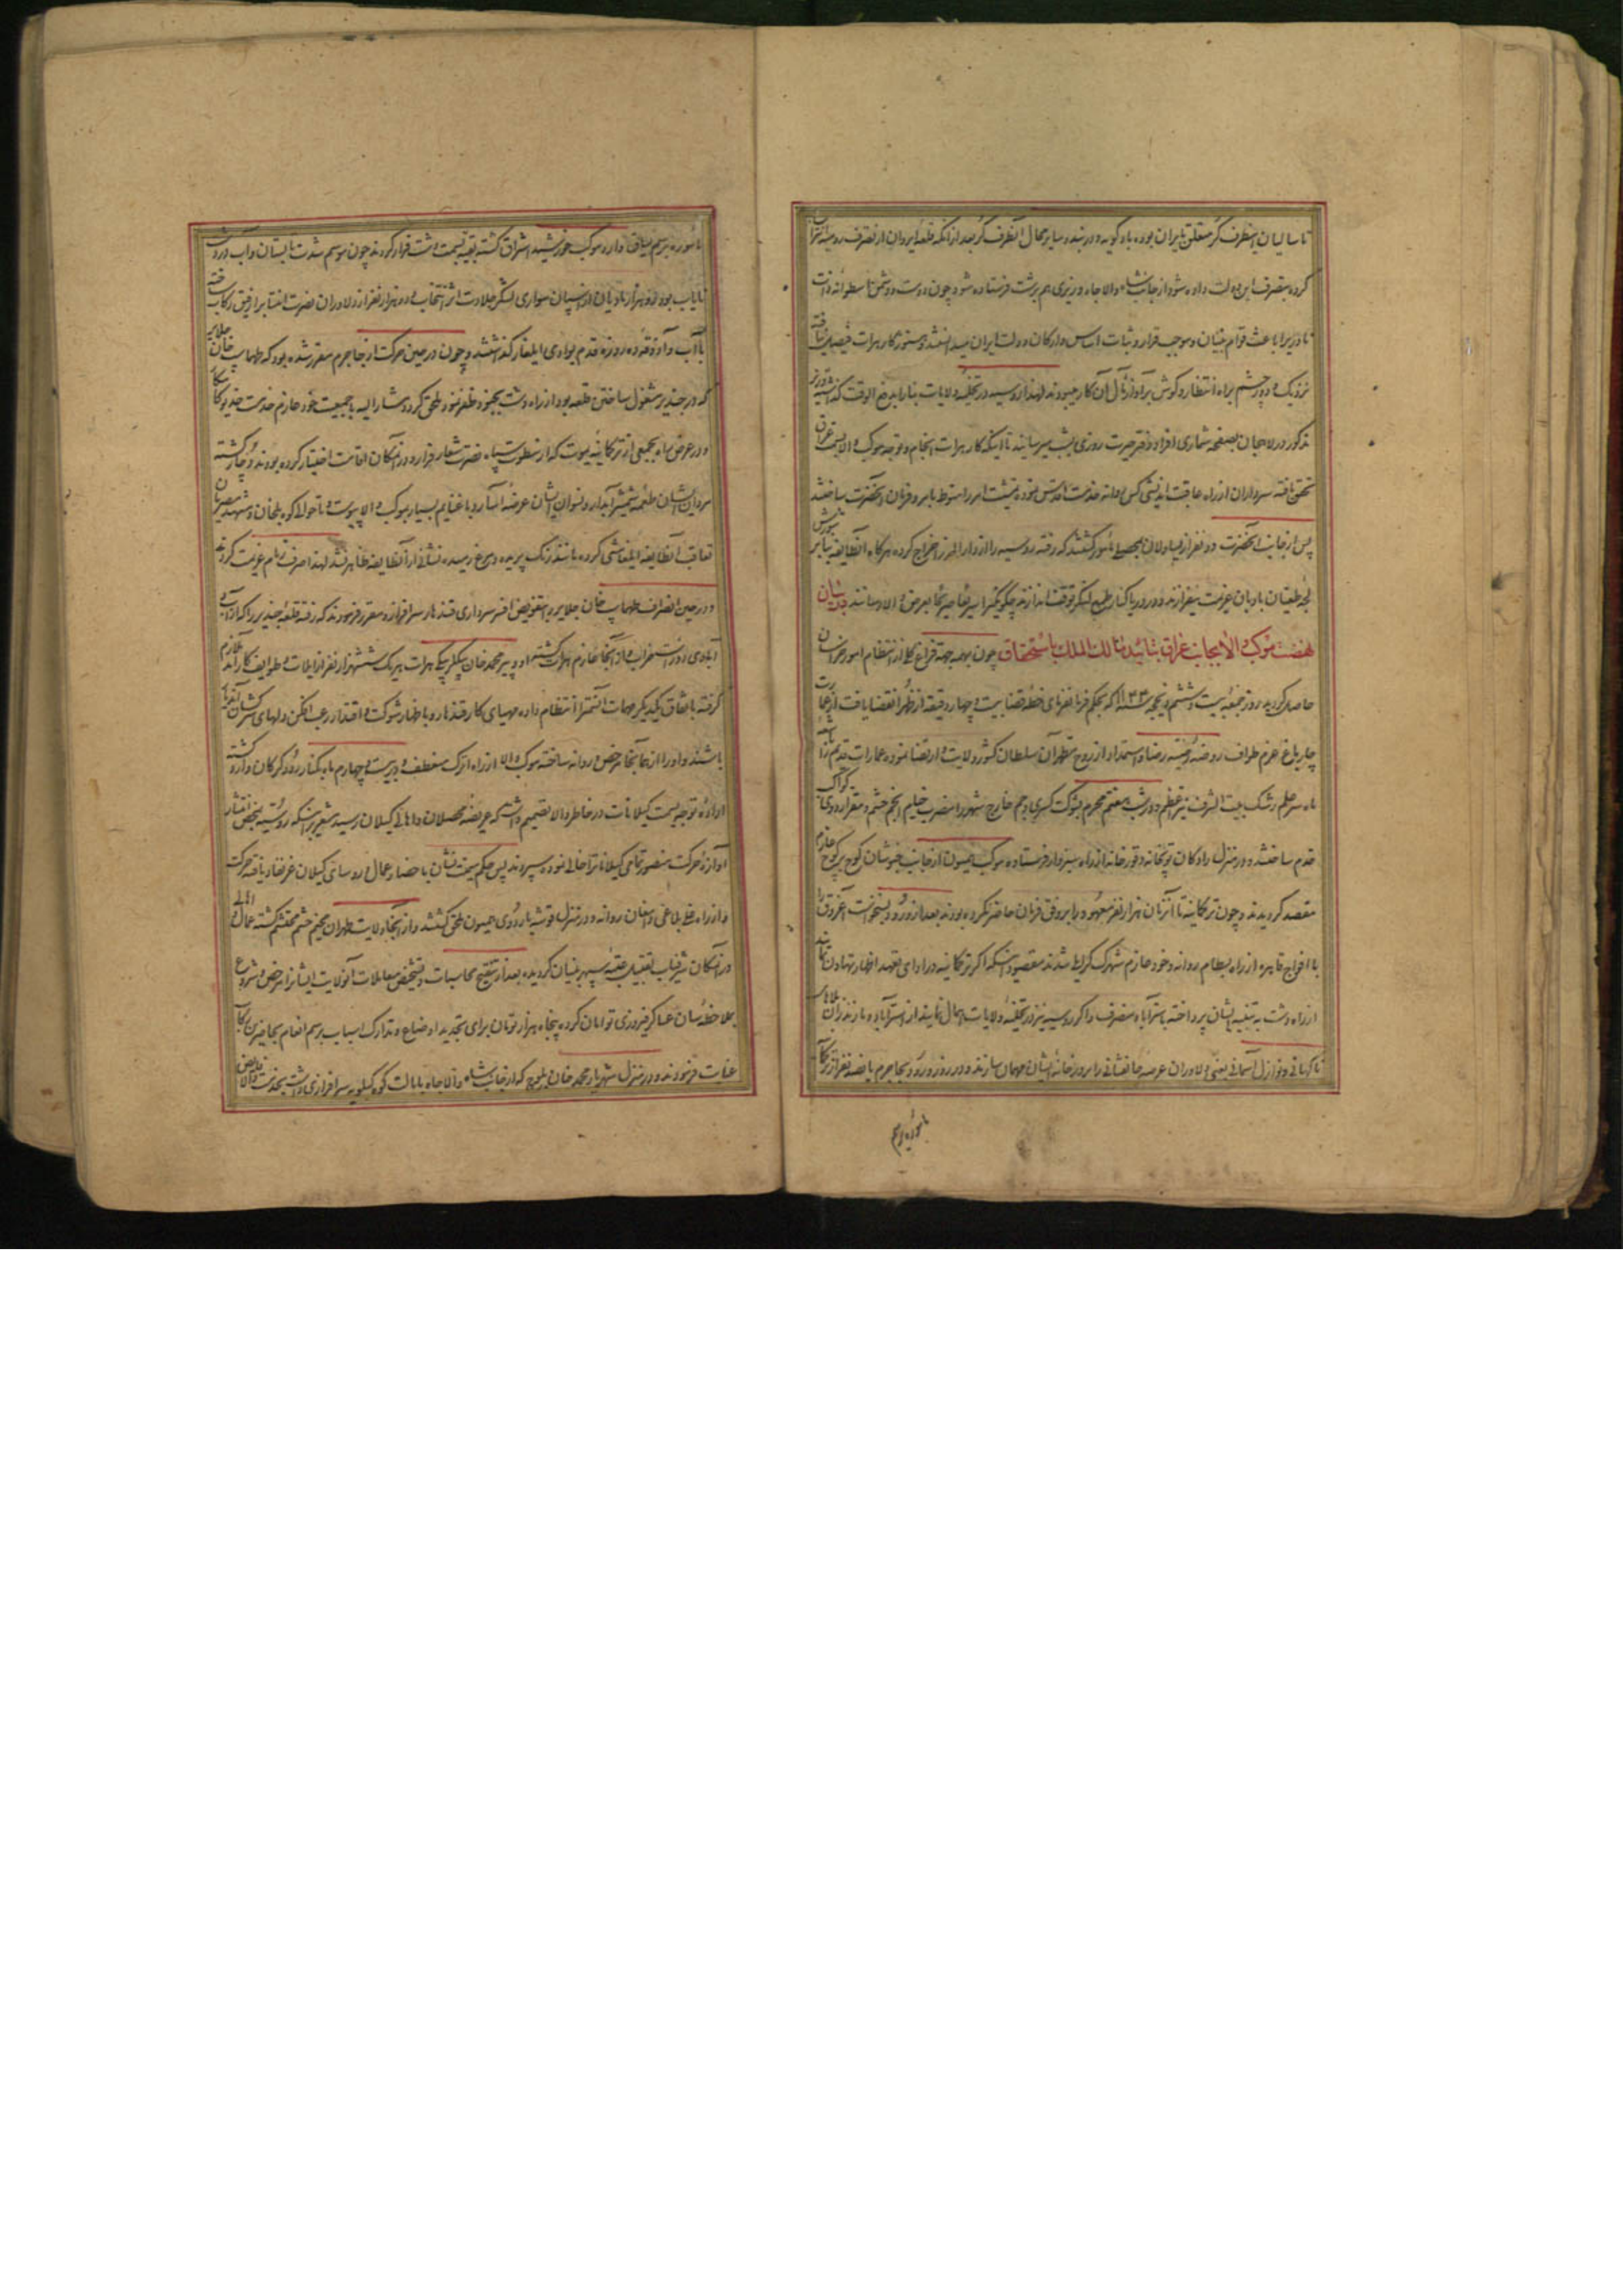 تا سالیان اینطرف کر متعلق بایران بوده بادکوبه و دربند و سایر محال آنطرف کر بعد از آنکه قلعه ایروان از تصرف رومیه انتزاع
کرده بتصرف این دولت داده شود از جانب شاه والاجاه وزیری هم برشت فرستاده شود چون دوست و دشمن
تا وزیر را باعث قوام بنیان و موجب قرار و ثبات اساس و ارکان دولت ایران میدانستند و هنوز کار هرات فیصل نیافته
نزدیک و دور چشم براه انتظار و گوش بر آواز مآل آن کار میبودند لهذا روسیه در تخلیه ولایات بنا بر
مذکور در لاهیجان بصفحه شماری افراد دفتر حیرت روزی بشب میرسانیدند تا اینکه کار هرات انجام و توجه موکب والا بسمت عراق
تحقق یافته سرداران از راه عاقبت اندیشی کس روانه خدمت اقدس نموده تمشیت امر را منوط بامر و فرمان آنحضرت ساختند
پس از جانب آنحضرت دو نفر از یساولان بمحصلی مأمور گشتند که رفته روسیه را از دار المرز اخراج کرده هرگاه آنطایفه بنا بر شورش
لجه طغیان بادبان عزیمت نیفرازند و در دریا کنار طبع لنگر توقف اندازند چگونگی را بعرض والا رسانند در بیان
نهضت موکب والا بجانب عراق بتائید مالک الملک باستحقاق چون همه جهة فراغ کلی از انتظام امور خراسان
حاصل گردید روز جمعه بیست و ششم ذیحجه ۱۱۴۴ که بحکم فرمانفرمای خطه قضا بیست و چهار دقیقه از ظهر انقضا یافت از عمارت
چارباغ عزم طواف روضه رضیه رضا و استمداد از روح مطهر آن سلطان کشور ولایت و ارتضا نموده عمارات
ماه سر علم رشک بیت الشرف نیر اعظم و در شب هفتم محرم بشوکت کسری و جم خارج شهر را مضرب خیام انجم حشم و مقر اردوی کواکب
قدم ساختند و در منزل رادکان توپخانه و قورخانه از راه سبزوار فرستاده موکب همیون از جانب خبوشان کوچ بر کوچ عازم
مقصد گردیدند و چون ترکمانیه تا آنزمان هزار نفر معهود را بر وفق فرمان حاضر نکرده بودند بعد از ورود و بسمنخواست آغروق را
با افواج قاهره از راه بسطام روانه و خود عازم شهرک کرایلی شدند مقصود اینکه اگر ترکمانیه در ادای تعهد اظهار تهاون نمایند
از راه دشت به تنبیه ایشان پرداخته باسترآباد منصرف و اگر روسیه نیز در تخلیه ولایات اهمال نمایند از استرآباد و مازندران بلای
ناگهانی و نوازل آسمانی یعنی دلاوران عرصه جانفشانی را بر در خانه ایشان مهمان سازند و در روز ورود بجاجرم پانصد نفر از ترکمان
مأموره برسم
مأموره برسم میثاق وارد موکب خورشید اشراق گشته بقیه بسمت دشت فرار کردند چون موسم شدت تابستان و آب در
نایاب بود دو هزار مادیان از اسپان سواری لشکر جلادت اثر انتخاب و دو هزار نفر از دلاوران نصرت انتما برفیق رکاب ساخته
با آب و آذوقه ده روزه قدم بوادی ایلغار گذاشتند و چون در حین حرکت از جاجرم مقرر شده بود که طهماسب خان جلایر
که در جندیر مشغول ساختن قلعه بود از راه دشت بجنود ظفر نمود ملحق گردد مشار الیه با جمعیت خود عازم خدمت
و در عرض راه بجمعی از ترکمانیه یموت که از سطوت سپاه نصرت شعار فرار و در آنمکان اقامت اختیار کرده بودند دچار گشته
مردان ایشان طعمه شمشیر آبدار و نسوان ایشان عرضه اسار و با غنایم بسیار بموکب والا پیوست و تا حوالی کوه بلخان
تعاقب آنطایفه ایلغامشی کرده مانند رنگ پریده و مرغ رمیده نشانی از آنطایفه ظاهر نشد لهذا صرف زمام عزیمت کردند
و در حین انصراف طهماسب خان جلایر را بتفویض افسر سرداری قندهار سرافراز و مقرر فرمودند که رفته قلعه جندیر را که از
آبادی او دست خراب و از آنجا عازم هرات گشته او و پیر محمد خان بیگلربیگی هرات هر یک ششهزار نفر از ایلات و طوایف کارآمد ملازم
گرفته باتفاق یکدیگر مهمات آنسمت را انتظام داده مهیای کار قندهار و باظهار شوکت و اقتدار رعب افکن دلهای سرکشان
باشند و او را از همانجا مرخص و روانه ساخته موکب والا از راه اترک منعطف و در بیست و چهارم ماه بکنار رود گرگان وارد گشته
اراده توجه بسمت گیلانات در خاطر والا تصمیم داشت که عریضه محصلان و اهالی گیلان رسید مشعر بر اینکه روسیه بمحض انتشار
آوازه حرکت منصور تمامی گیلانات را خالی نموده سپردند پس حکم میمنت نشان باحضار عمال و روسای گیلان عز نفاذ یافته حرکت
و از راه علی بلاغی دامغان روانه و در منزل قوشه باردوی همیون ملحق گشتند و از آنجا ولایت طهران مخیم خیم محتشم گشته عمال و اهالی
در آنمکان شرفیاب تقبیل عتبه سپهر بنیان گردیده بعد از تنقیح محاسبات و تشخیص معاملات آنولایت ایشان را مرخص و شروع
بملاحظه سان عساکر فیروزی توامان کرده پنجاه هزار تومان برای تجدید اوضاع و تدارک اسباب برسم انعام بحاضرین رکاب
عنایت فرمودند و در منزل شهریار محمد خان بلوچ که از جانب شاه والاجاه بایالت کوه کیلویه سرافرازی داشت بخدمت والا